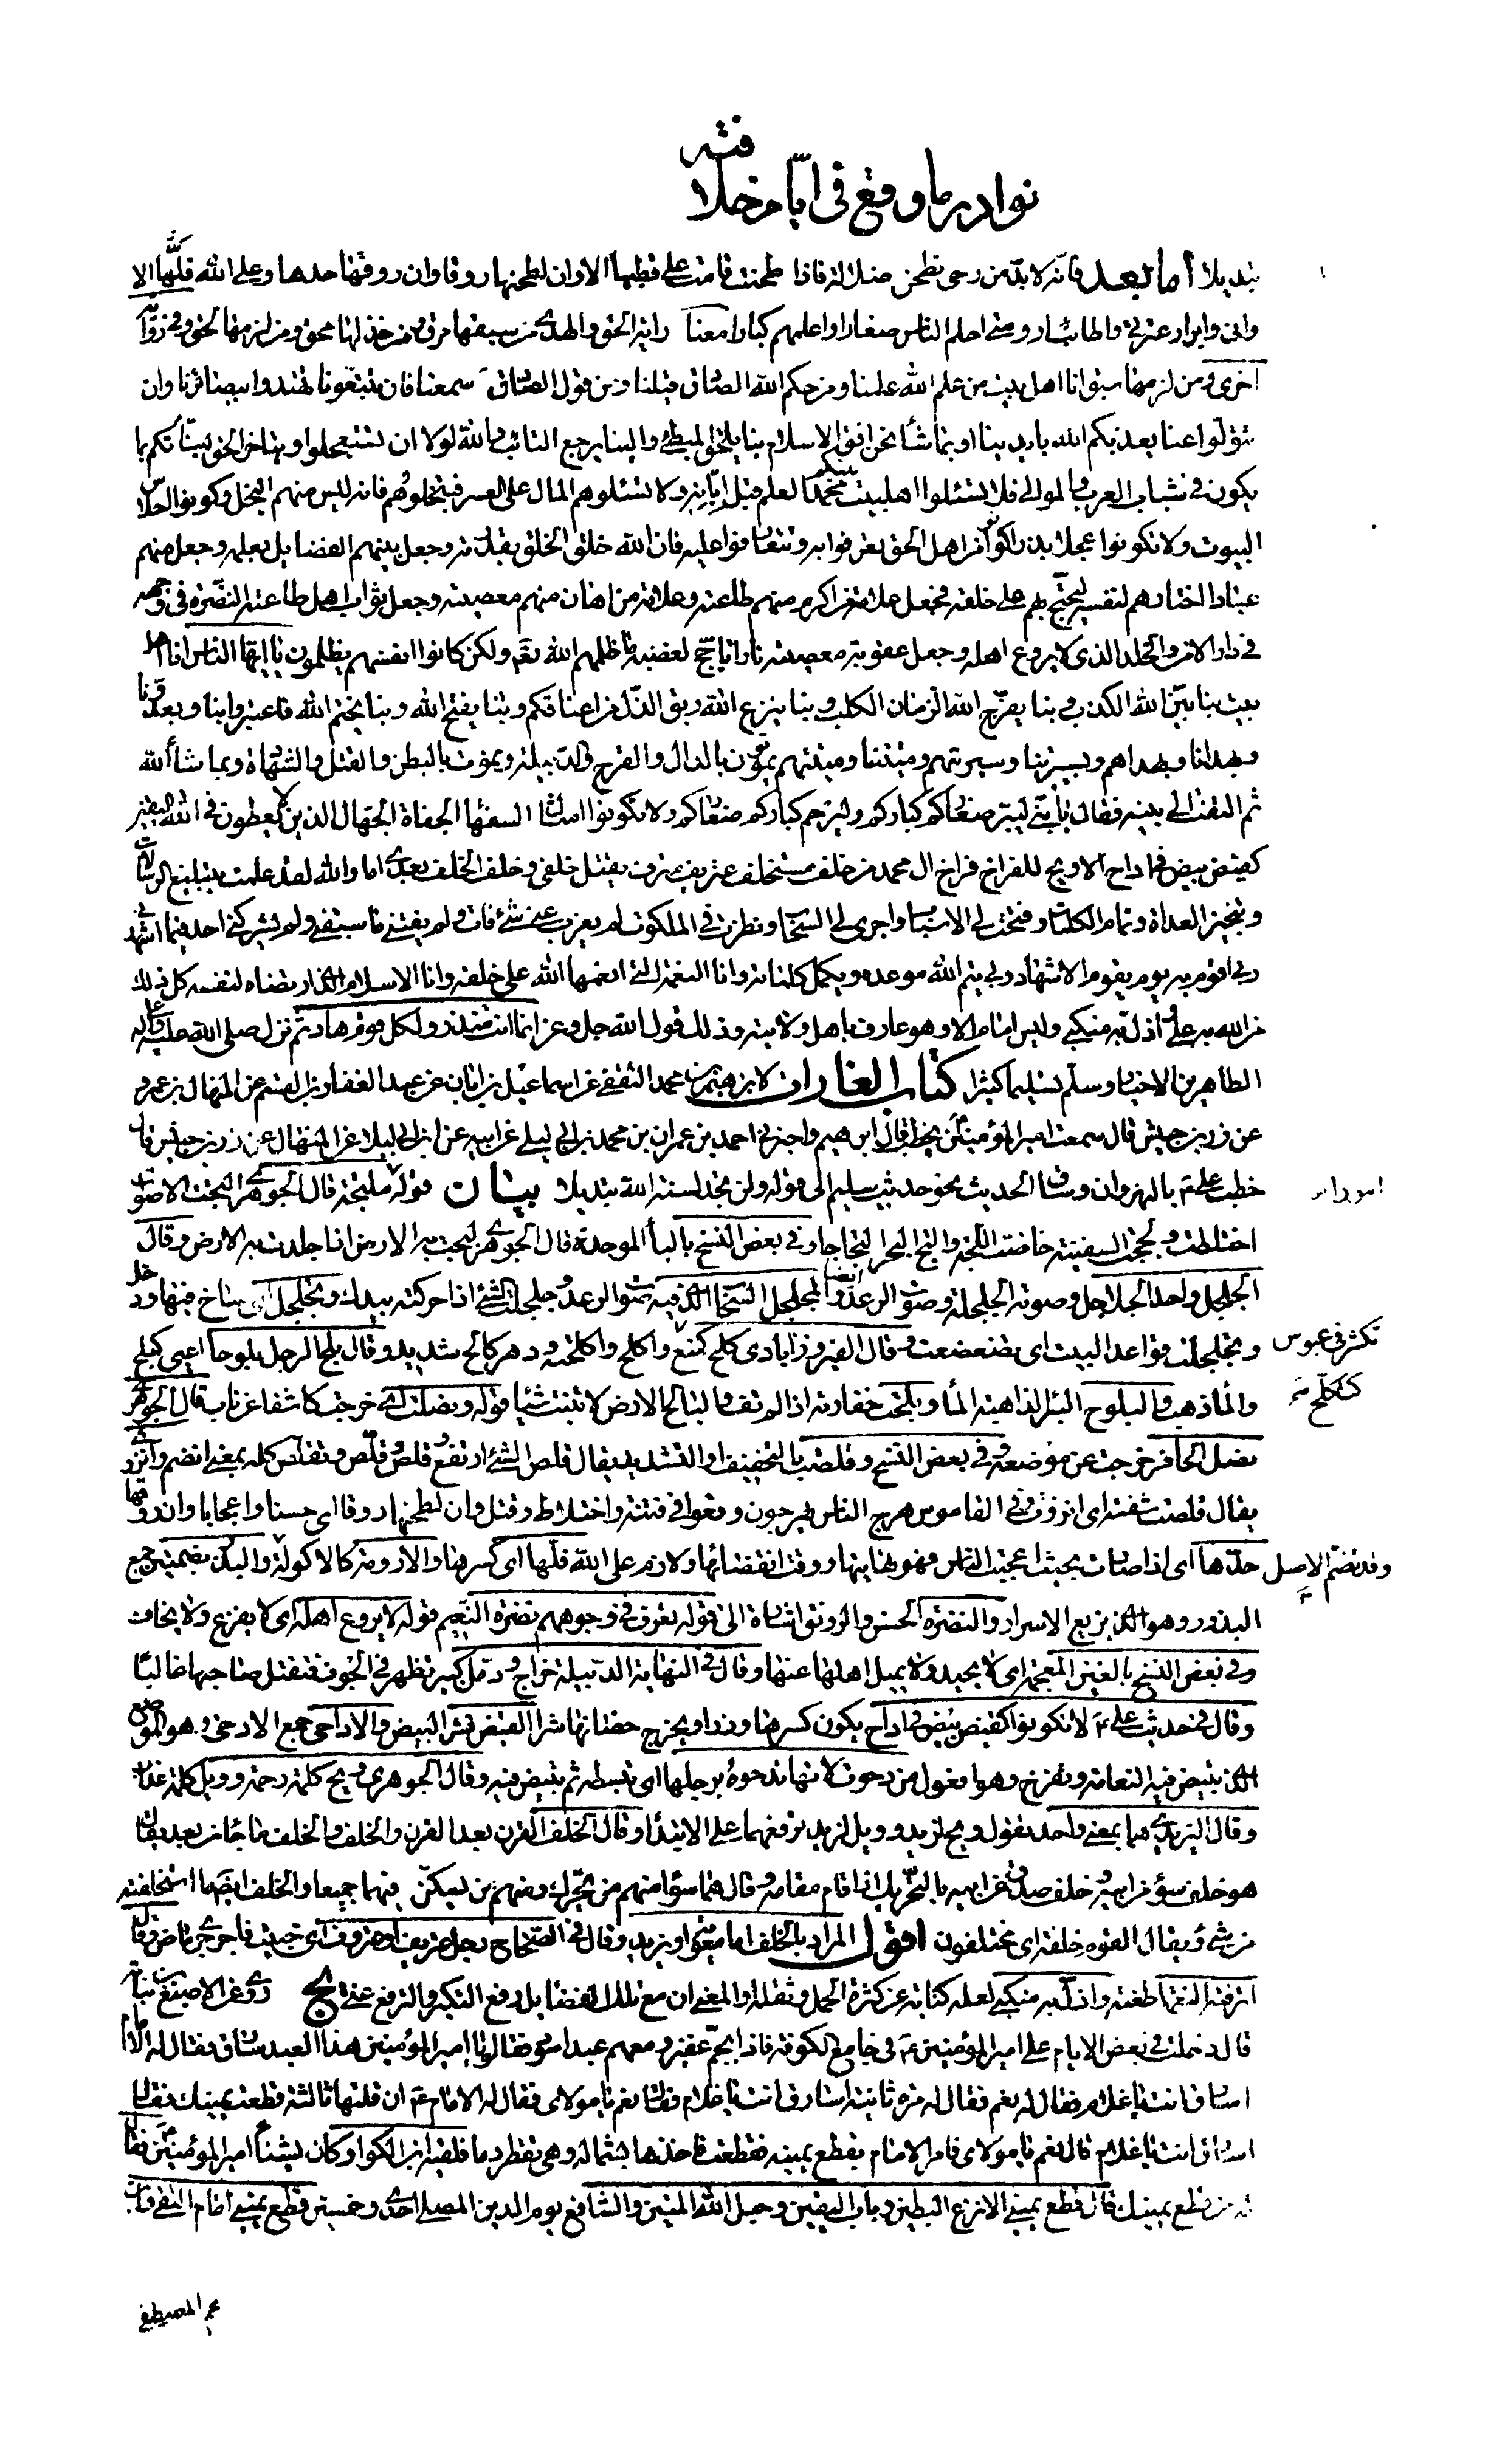 نوادر ما وقع في ايام خلافته
تبديلا أما بعد فانه لا بد من رحى تطحن ضلالة فاذا طحنت قامت على قطبها الا وان لطحنها روقا وان روقها حدها وعلى الله فلّها الا
واني وابرار عترتي واطائب ارومتي احلم الناس صغارا واعلمهم كبارا معنا راية الحق والهدى من سبقها مرق ومن خذلها محق ومن لزمها لحق وفي رواية
اخرى ومن لزمها سبق انا اهل بيت من علم الله علمنا ومن حكم الله الصادق قيلنا ومن قول الصادق سمعنا فان تتبعونا تهتدوا ببصائرنا وان
تتولوا عنا يعذبكم الله بايدينا او بما شاء نحن افق الاسلام بنا يلحق المبطئ والينا يرجع التائب والله لولا ان تستعجلوا ويتاخر الحق لنبأتكم بما
يكون في شباب العرب والموالي فلا تسئلوا اهل بيت نبيكم محمد العلم قبل ابانه ولا تسئلوهم المال على العسر فتبخلوهم فانه ليس منهم البخل وكونوا احلاس
البيوت ولا تكونوا عجلا بذرا كونوا من اهل الحق تعرفوا به وتتعارفوا عليه فان الله خلق الخلق بقدرته وجعل بينهم الفضايل بعلمه وجعل منهم
عبادا اختارهم لنفسه ليحتج بهم على خلقه فجعل علامة من اكرم منهم طاعته وعلامة من اهان منهم معصيته وجعل ثواب اهل طاعته النضرة في وجهه
في دار الامن والخلد الذي لا يروع اهله وجعل عقوبة معصيته نارا تاجج لغضبه ما ظلمهم الله ولكن كانوا انفسهم يظلمون يا ايها الناس انا اهل
بيت بنا بين الله الكذب وبنا يفرج الله الزمان الكلب وبنا ينزع الله ربق الذل من اعناقكم وبنا يفتح الله وبنا يختم الله فاعتبروا بنا وبعدونا
وبهدانا وبهداهم وبسيرتنا وسيرتهم وميتتنا وميتتهم يموتون بالدال والقرح والدبيلة ونموت بالبطن والقتل والشهادة وبما شاء الله
ثم التفت الى بنيه فقال يا بني ليبر صغاركم كباركم وليرحم كباركم صغاركم ولا تكونوا امثال السفهاء الجفاة الجهال الذين لا يعطون في الله اليقين
كقيض بيض في اداح الا ويح للفراخ فراخ ال محمد من خلف مستخلف عتريف مترف يقتل خلفي وخلف الخلف بعدي اما والله لقد علمت تبليغ الرسالات
وتنجيز العداة وتمام الكلمات وفتحت لي الاسباب واجرى لي السحاب ونظرت في الملكوت لم يعزب عني شئ فات ولم يفتني ما سبقني ولم يشركني احد فيما اشهدني
ربي اقوم به يوم يقوم الاشهاد وبي يتم الله موعده ويكمل كلماته وانا النعمة التي انعمها الله على خلقه وانا الاسلام الذي ارتضاه لنفسه كل ذلك
من الله به علي واذل به منكبي وليس امام الا وهو عارف باهل ولايته وذلك قول الله جل وعز انما انت منذر ولكل قوم هاد ثم نزل صلى الله عليه وعلى اله
الطاهرين الاخيار وسلم تسليما كثيرا كتاب الغارات لابرهيم بن محمد الثقفي عن اسماعيل بن ابان عن عبد الغفار بن القسم عن المنهال بن عمرو
عن زر بن حبيش قال سمعت امير المؤمنين يخطب قال ابرهيم واخبرني احمد بن عمران بن محمد بن ابي ليلى عن ابيه عن ابن ابي ليلى عن المنهال عن زر بن حبيش قال
خطب علي بالنهروان وساق الحديث نحو حديث سليم الى قوله ولن تجد لسنة الله تبديلا بيان قوله ملتجة قال الجوهري التجت الاصوات
اختلطت ولججت السفينة خاضت اللجة والتج البحر التجاجا وفي بعض النسخ بالباء الموحدة قال الجوهري لبجت به الارض اذا جلدت به الارض وقال
الجلجل واحد الجلاجل وصوته الجلجلة وصوت الرعد ايضا والمجلجل السحاب الذي فيه صوت الرعد وجلجلت الشئ اذا حركته بيدك وتجلجل اي ساخ فيها ودخل
وتجلجلت قواعد البيت اي تضعضعت وقال الفيروزابادي كلح كمنع تكشر في عبوس كتكلح واكلح واكلحته ودهر كالح شديد وقال بلح الرجل بلوحا اعيى كبلح
والماء ذهب والبلوح البئر الذاهبة الماء وبلحت خفارته اذا لم تف والبالح الارض لا تنبت شيئا قوله ونصلت اي خرجت كاشفا عن ناب قال الجوهري
نصل الحافر خرجت عن موضعه وفي بعض النسخ وقلصت بالتخفيف او التشديد يقال قلص الشئ ارتفع وقلص وقلّص وتقلص كله بمعنى انضم وانزوى
يقال قلصت شفته اي انزوت وفي القاموس هرج الناس يهرجون وقعوا في فتنة واختلاط وقتل وان لطحنها روقا اي حسنا واعجابا وان روقها
حدها اي اذا صارت بحيث اعجبت الناس فهو نهايتها ووقت انقضائها ولازم على الله فلها اي كسرها والارومة كالاكولة وقد تضم الاصل والبذر بضمتين جمع
البذور وهو الذي يذيع الاسرار والنضرة الحسن والرونق اشارة الى قوله تعرف في وجوههم نضرة النعيم قوله لا يروع اهله اي لا يفزع ولا يخاف
وفي بعض النسخ بالغين المعجمة اي لا يحيد ولا يميل اهلها عنها وقال في النهاية الدبيلة خراج ودمل كبير تظهر في الجوف فتقتل صاحبها غالبا
وقال في حديث علي لا تكونوا كقيض بيض في اداح يكون كسرها وزرا ويخرج حضانها شرا القيض قشر البيض والاداحي جمع الادحي وهو الموضع
الذي تبيض فيه النعامة وتفرخ وهو افعول من دحوت لانها تدحوه برجلها اي تبسطه ثم تبيض فيه وقال الجوهري ويح كلمة رحمة وويل كلمة عذاب
وقال اليزيدي هما بمعنى واحد تقول ويح لزيد وويل لزيد ترفعهما على الابتداء وقال الخلف القرن بعد القرن والخلف والخلف ما جاء من بعد يقال
هو خلف سوء من ابيه وخلف صدق من ابيه بالتحريك اذا قام مقامه وقال هما سواء منهم من يحرك ومنهم من يسكن فيهما جميعا والخلف ايضا ما استخلفته
من شئ ويقال القوم خلفة اي مختلفون اقول المراد بالخلف اما معوية او يزيد وقال في الصحاح رجل عتريف وعتروف اي خبيث فاجر جرئ ماض وقال
اترفته النعمة اطغته واذل به منكبي لعله كناية عن كثرة الحمل وثقله او المعنى ان مع تلك الفضايل رفع التكبر والترفع عني يج روي عن الاصبغ بن نباتة
قال دخلت في بعض الايام على امير المؤمنين في جامع الكوفة فاذا بجم غفير ومعهم عبد اسود فقالوا يا امير المؤمنين هذا العبد سارق فقال له الامام
اسارق انت يا غلام فقال له نعم فقال له مرة ثانية اسارق انت يا غلام فقال نعم يا مولاي فقال له الامام ان قلتها ثالثة قطعت يمينك فقال
اسارق انت يا غلام قال نعم يا مولاي فامر الامام بقطع يمينه فقطعت فاخذها بشماله وهي تقطر دما فلقيه ابن الكوا وكان يشنأ امير المؤمنين فقال
له من قطع يمينك قال قطع يميني الانزع البطين وباب اليقين وحبل الله المتين والشافع يوم الدين المصلي احدى وخمسين قطع يميني امام التقى